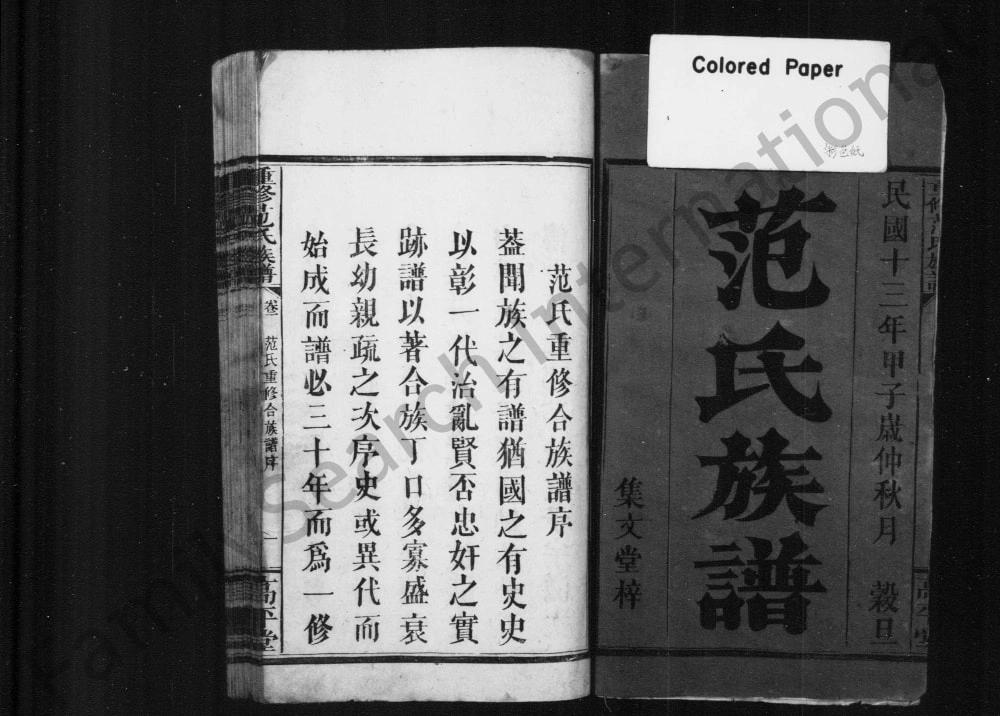 Colored Paper
彩色紙
重修范氏族譜
高平堂
民國十三年甲子歲仲秋月 榖旦
范氏族譜
集文堂梓
范氏重修合族譜序
葢聞族之有譜猶國之有史史
以彰一代治亂賢否忠奸之實
跡譜以著合族丁口多寡盛衰
長幼親疏之次序史或異代而
始成而譜必三十年而爲一修
重修范氏族譜
卷一
范氏重修合族譜序
一
高平堂
Family Search International